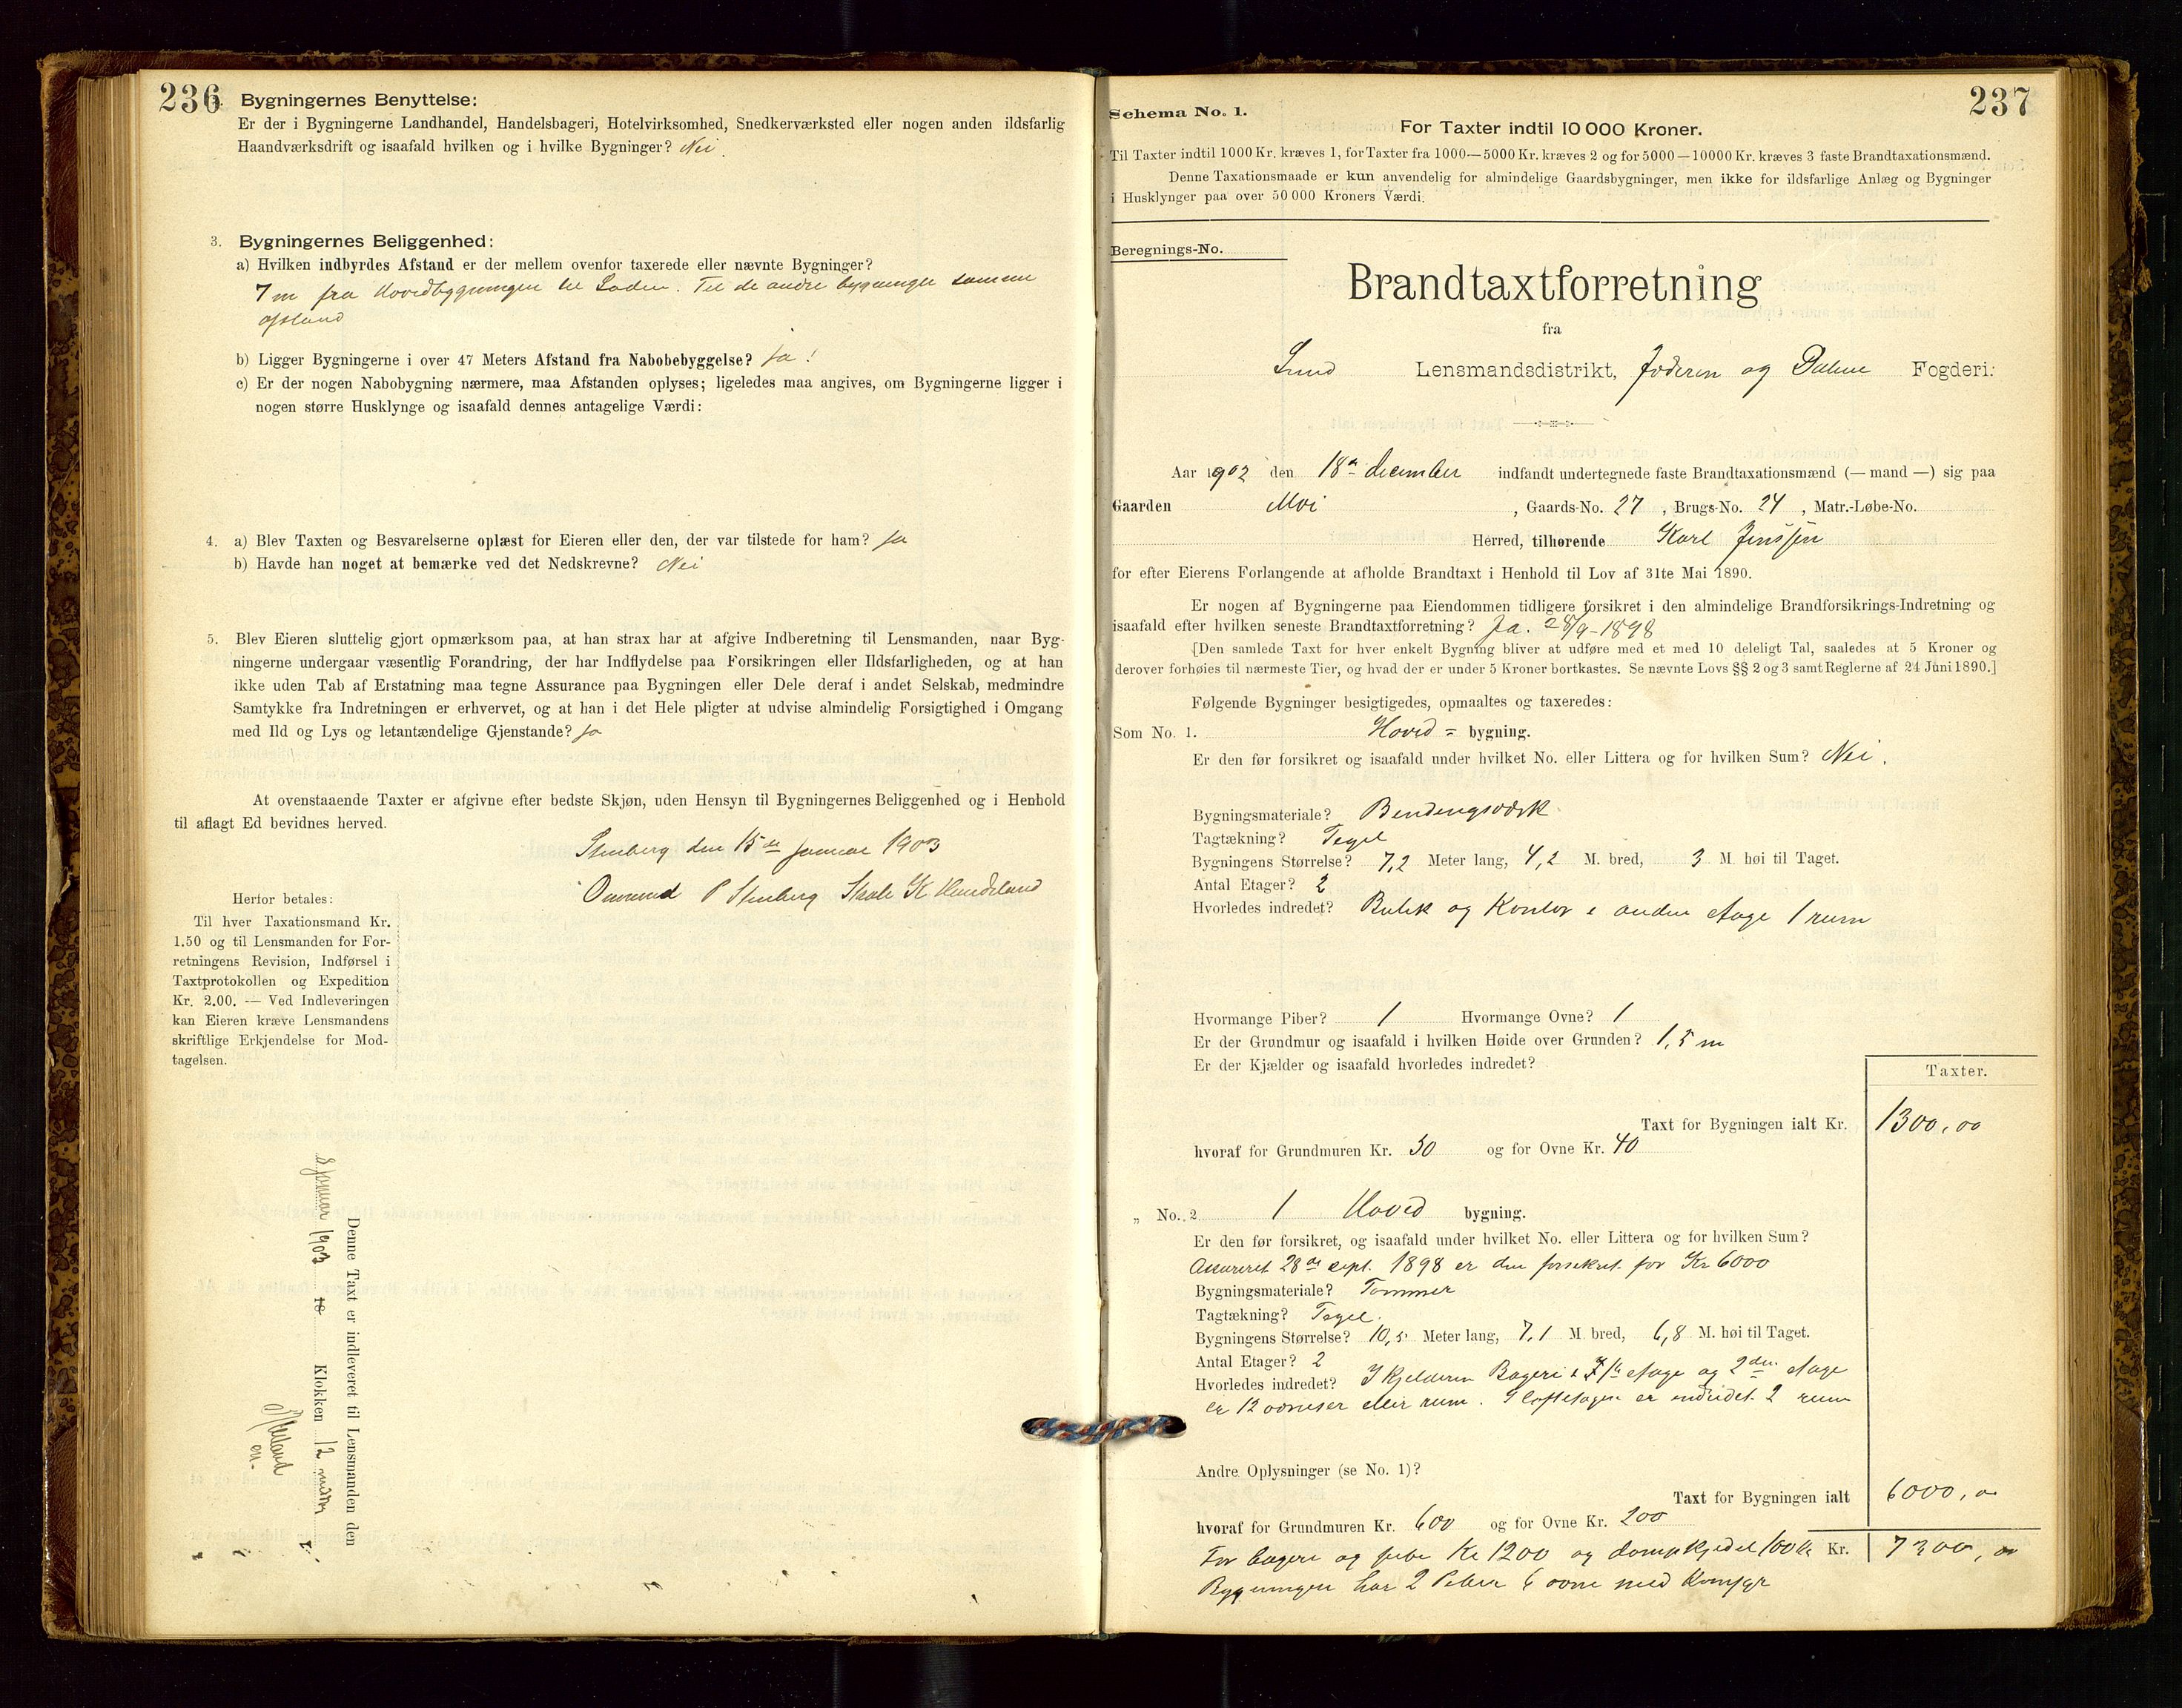 236
Bygningernes Benyttelse:
Er der i Bygningerne Landhandel, Handelsbageri, Hotelvirksomhed, Snedkerværksted eller nogen anden ildsfarlig
Haandværksdrift og isaafald hvilken og i hvilke Bygninger? Nei.
3. Bygningernes Beliggenhed:
a) Hvilken indbyrdes Afstand er der mellem ovenfor taxerede eller nævnte Bygninger?
7 m fra Hovedbygningen til Laden. Til de andre bygninger samme
afstand
b) Ligger Bygningerne i over 47 Meters Afstand fra Nabobebyggelse? Ja!
c) Er der nogen Nabobygning nærmere, maa Afstanden oplyses; ligeledes maa angives, om Bygningerne ligger i
nogen større Husklynge og isaafald dennes antagelige Værdi:
4. a) Blev Taxten og Besvarelserne oplæst for Eieren eller den, der var tilstede for ham? Ja
b) Havde han noget at bemærke ved det Nedskrevne? Nei
5. Blev Eieren sluttelig gjort opmærksom paa, at han strax har at afgive Indberetning til Lensmanden, naar Byg-
ningerne undergaar væsentlig Forandring, der har Indflydelse paa Forsikringen eller Ildsfarligheden, og at han
ikke uden Tab af Erstatning maa tegne Assurance paa Bygningen eller Dele deraf i andet Selskab, medmindre
Samtykke fra Indretningen er erhvervet, og at han i det Hele pligter at udvise almindelig Forsigtighed i Omgang
med Ild og Lys og letantændelige Gjenstande? Ja
At ovenstaaende Taxter er afgivne efter bedste Skjøn, uden Hensyn til Bygningernes Beliggenhed og i Henhold
til aflagt Ed bevidnes herved.
Stenberg den 15de Januar 1903
Omund P Stenberg K
Herfor betales:
Til hver Taxationsmand Kr.
1.50 og til Lensmanden for For-
retningens Revision, Indførsel i
Taxtprotokollen og Expedition
Kr. 2.00. — Ved Indleveringen
kan Eieren kræve Lensmandens
skriftlige Erkjendelse for Mod-
tagelsen.
Denne Taxt er indleveret til Lensmanden den
Januar 1903 18 Klokken 12 middag
237
Schema No. 1.
For Taxter indtil 10 000 Kroner.
Til Taxter indtil 1000 Kr. kræves 1, for Taxter fra 1000—5000 Kr. kræves 2 og for 5000—10000 Kr. kræves 3 faste Brandtaxationsmænd.
Denne Taxationsmaade er kun anvendelig for almindelige Gaardsbygninger, men ikke for ildsfarlige Anlæg og Bygninger
i Husklynger paa over 50 000 Kroners Værdi.
Beregnings-No.
Brandtaxtforretning
fra
Lund Lensmandsdistrikt, Jæderen og Dalene Fogderi.
Aar 1902 den 18de december indfandt undertegnede faste Brandtaxationsmænd (— mand —) sig paa
Gaarden Moi, Gaards-No. 27, Brugs-No. 24, Matr.-Løbe-No.
Herred, tilhørende Karl Jenssen
for efter Eierens Forlangende at afholde Brandtaxt i Henhold til Lov af 31te Mai 1890.
Er nogen af Bygningerne paa Eiendommen tidligere forsikret i den almindelige Brandforsikrings-Indretning og
isaafald efter hvilken seneste Brandtaxtforretning? Ja. 28/9-1898
[Den samlede Taxt for hver enkelt Bygning bliver at udføre med et med 10 deleligt Tal, saaledes at 5 Kroner og
derover forhøies til nærmeste Tier, og hvad der er under 5 Kroner bortkastes. Se nævnte Lovs §§ 2 og 3 samt Reglerne af 24 Juni 1890.]
Følgende Bygninger besigtigedes, opmaaltes og taxeredes:
Som No. 1. Hoved = bygning.
Er den før forsikret og isaafald under hvilket No. eller Littera og for hvilken Sum? Nei.
Bygningsmateriale? Bindingsværk
Tagtækning? Tegel
Bygningens Størrelse? 7,2 Meter lang, 4,2 M. bred, 3 M. høi til Taget.
Antal Etager? 2
Hvorledes indredet? Butik og Kontor i anden etage 1 rum
Hvormange Piber? 1 Hvormange Ovne? 1
Er der Grundmur og isaafald i hvilken Høide over Grunden? 1,5 m
Er der Kjælder og isaafald hvorledes indredet?
Taxter.
Taxt for Bygningen ialt Kr. 1300,00
hvoraf for Grundmuren Kr. 50 og for Ovne Kr. 40
„ No. 2 1 Hoved bygning.
Er den før forsikret, og isaafald under hvilket No. eller Littera og for hvilken Sum?
Assureret 28de sept. 1898 er den forsikret for Kr 6000
Bygningsmateriale? Tømmer
Tagtækning? Tegel.
Bygningens Størrelse? 10,5 Meter lang, 7,1 M. bred, 6,8 M. høi til Taget.
Antal Etager? 2
Hvorledes indredet? I Kjelderen Bageri i 1ste etage og 2den etage
er 12 værelser eller rum. I loftetagen er indredet 2 rum
Andre Oplysninger (se No. 1)?
Taxt for Bygningen ialt 6000,00
hvoraf for Grundmuren Kr. 600 og for Ovne Kr. 200
For bageri og pibe Kr 1200 og dampkjedel 100 Kr Kr. 7300,00
Bygningen har 2 Piber 6 ovne med Komfyr